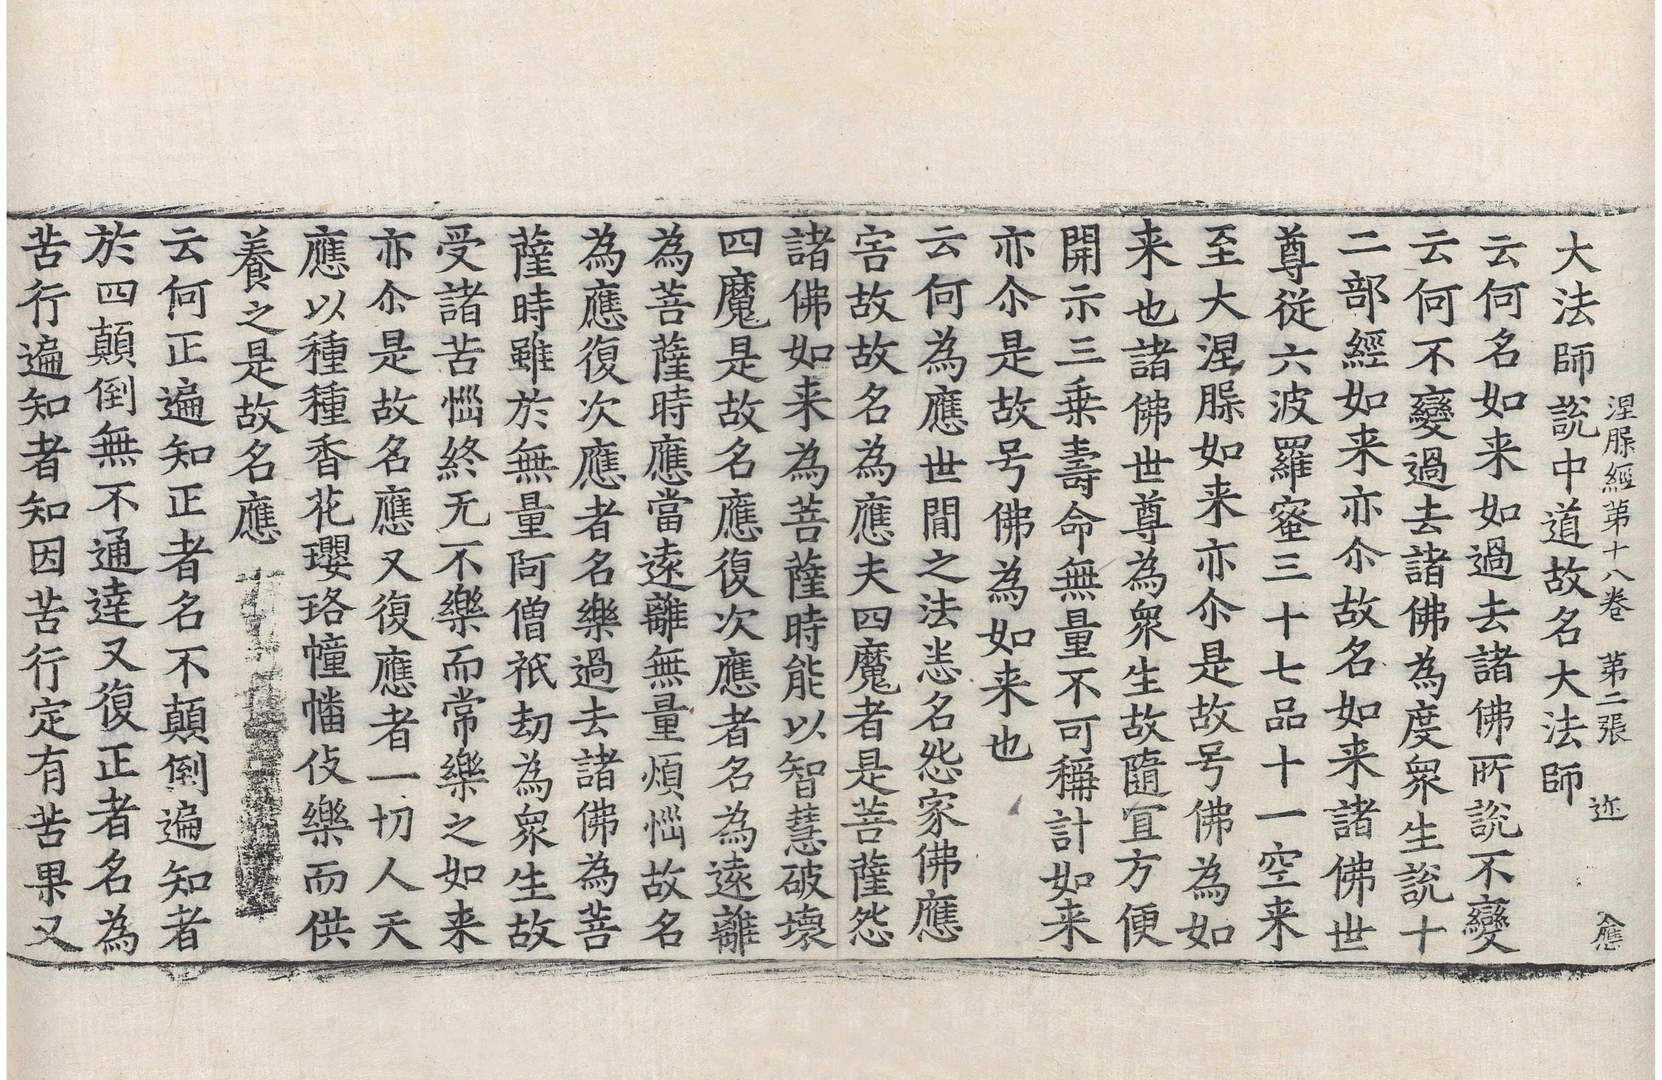 涅槃經第十八卷 第二張 迩 應
大法師說中道故名大法師
云何名如来如過去諸佛所說不變
云何不變過去諸佛為度衆生說十
二部經如来亦尒故名如来諸佛世
尊從六波羅蜜三十七品十一空来
至大涅槃如来亦尒是故号佛為如
来也諸佛世尊為衆生故隨宜方便
開示三乗壽命無量不可稱計如来
亦尒是故号佛為如来也
云何為應世閒之法悉名怨家佛應
害故故名為應夫四魔者是菩薩怨
諸佛如来為菩薩時能以智慧破壞
四魔是故名應復次應者名為遠離
為菩薩時應當遠離無量煩惱故名
為應復次應者名樂過去諸佛為菩
薩時雖於無量阿僧祇劫為衆生故
受諸苦惱終无不樂而常樂之如来
亦尒是故名應又復應者一切人天
應以種種香花瓔珞幢幡伎樂而供
養之是故名應
云何正遍知正者名不顛倒遍知者
於四顛倒無不通達又復正者名為
苦行遍知者知因苦行定有苦果又